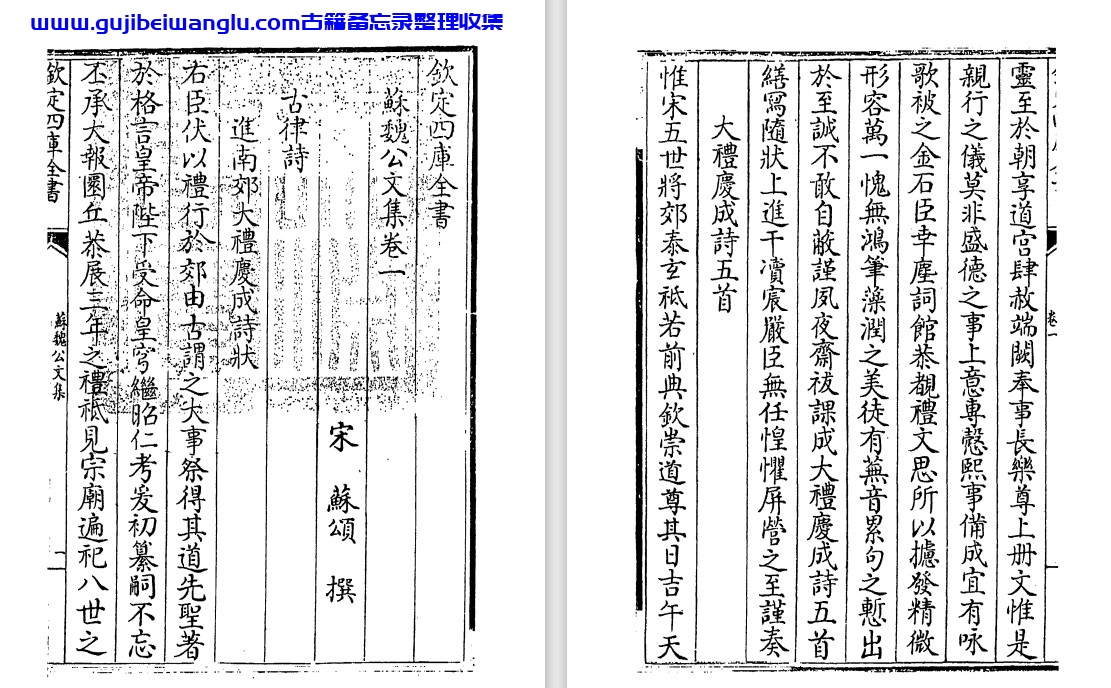 www.gujibeiwanglu.com古籍备忘录整理收集
欽定四庫全書
蘇魏公文集卷一
宋 蘇頌 撰
古律詩
進南郊大禮慶成詩狀
右臣伏以禮行於郊由古謂之大事祭得其道先聖著
於格言皇帝陛下受命皇穹繼昭仁考爰初纂嗣不忘
丕承大報圜丘恭展三年之禮祗見宗廟遍祀八世之
欽定四庫全書
蘇魏公文集
一
靈至於朝享道宮肆赦端闕奉事長樂尊上册文惟是
親行之儀莫非盛德之事上意專慤熙事備成宜有咏
歌被之金石臣幸塵詞館恭覩禮文思所以攄發精微
形容萬一愧無鴻筆藻潤之美徒有蕪音累句之慙出
於至誠不敢自蔽謹夙夜齋祓課成大禮慶成詩五首
繕寫隨狀上進干凟宸嚴臣無任惶懼屏營之至謹奏
大禮慶成詩五首
惟宋五世將郊泰玄祗若前典欽崇道尊其日吉午天